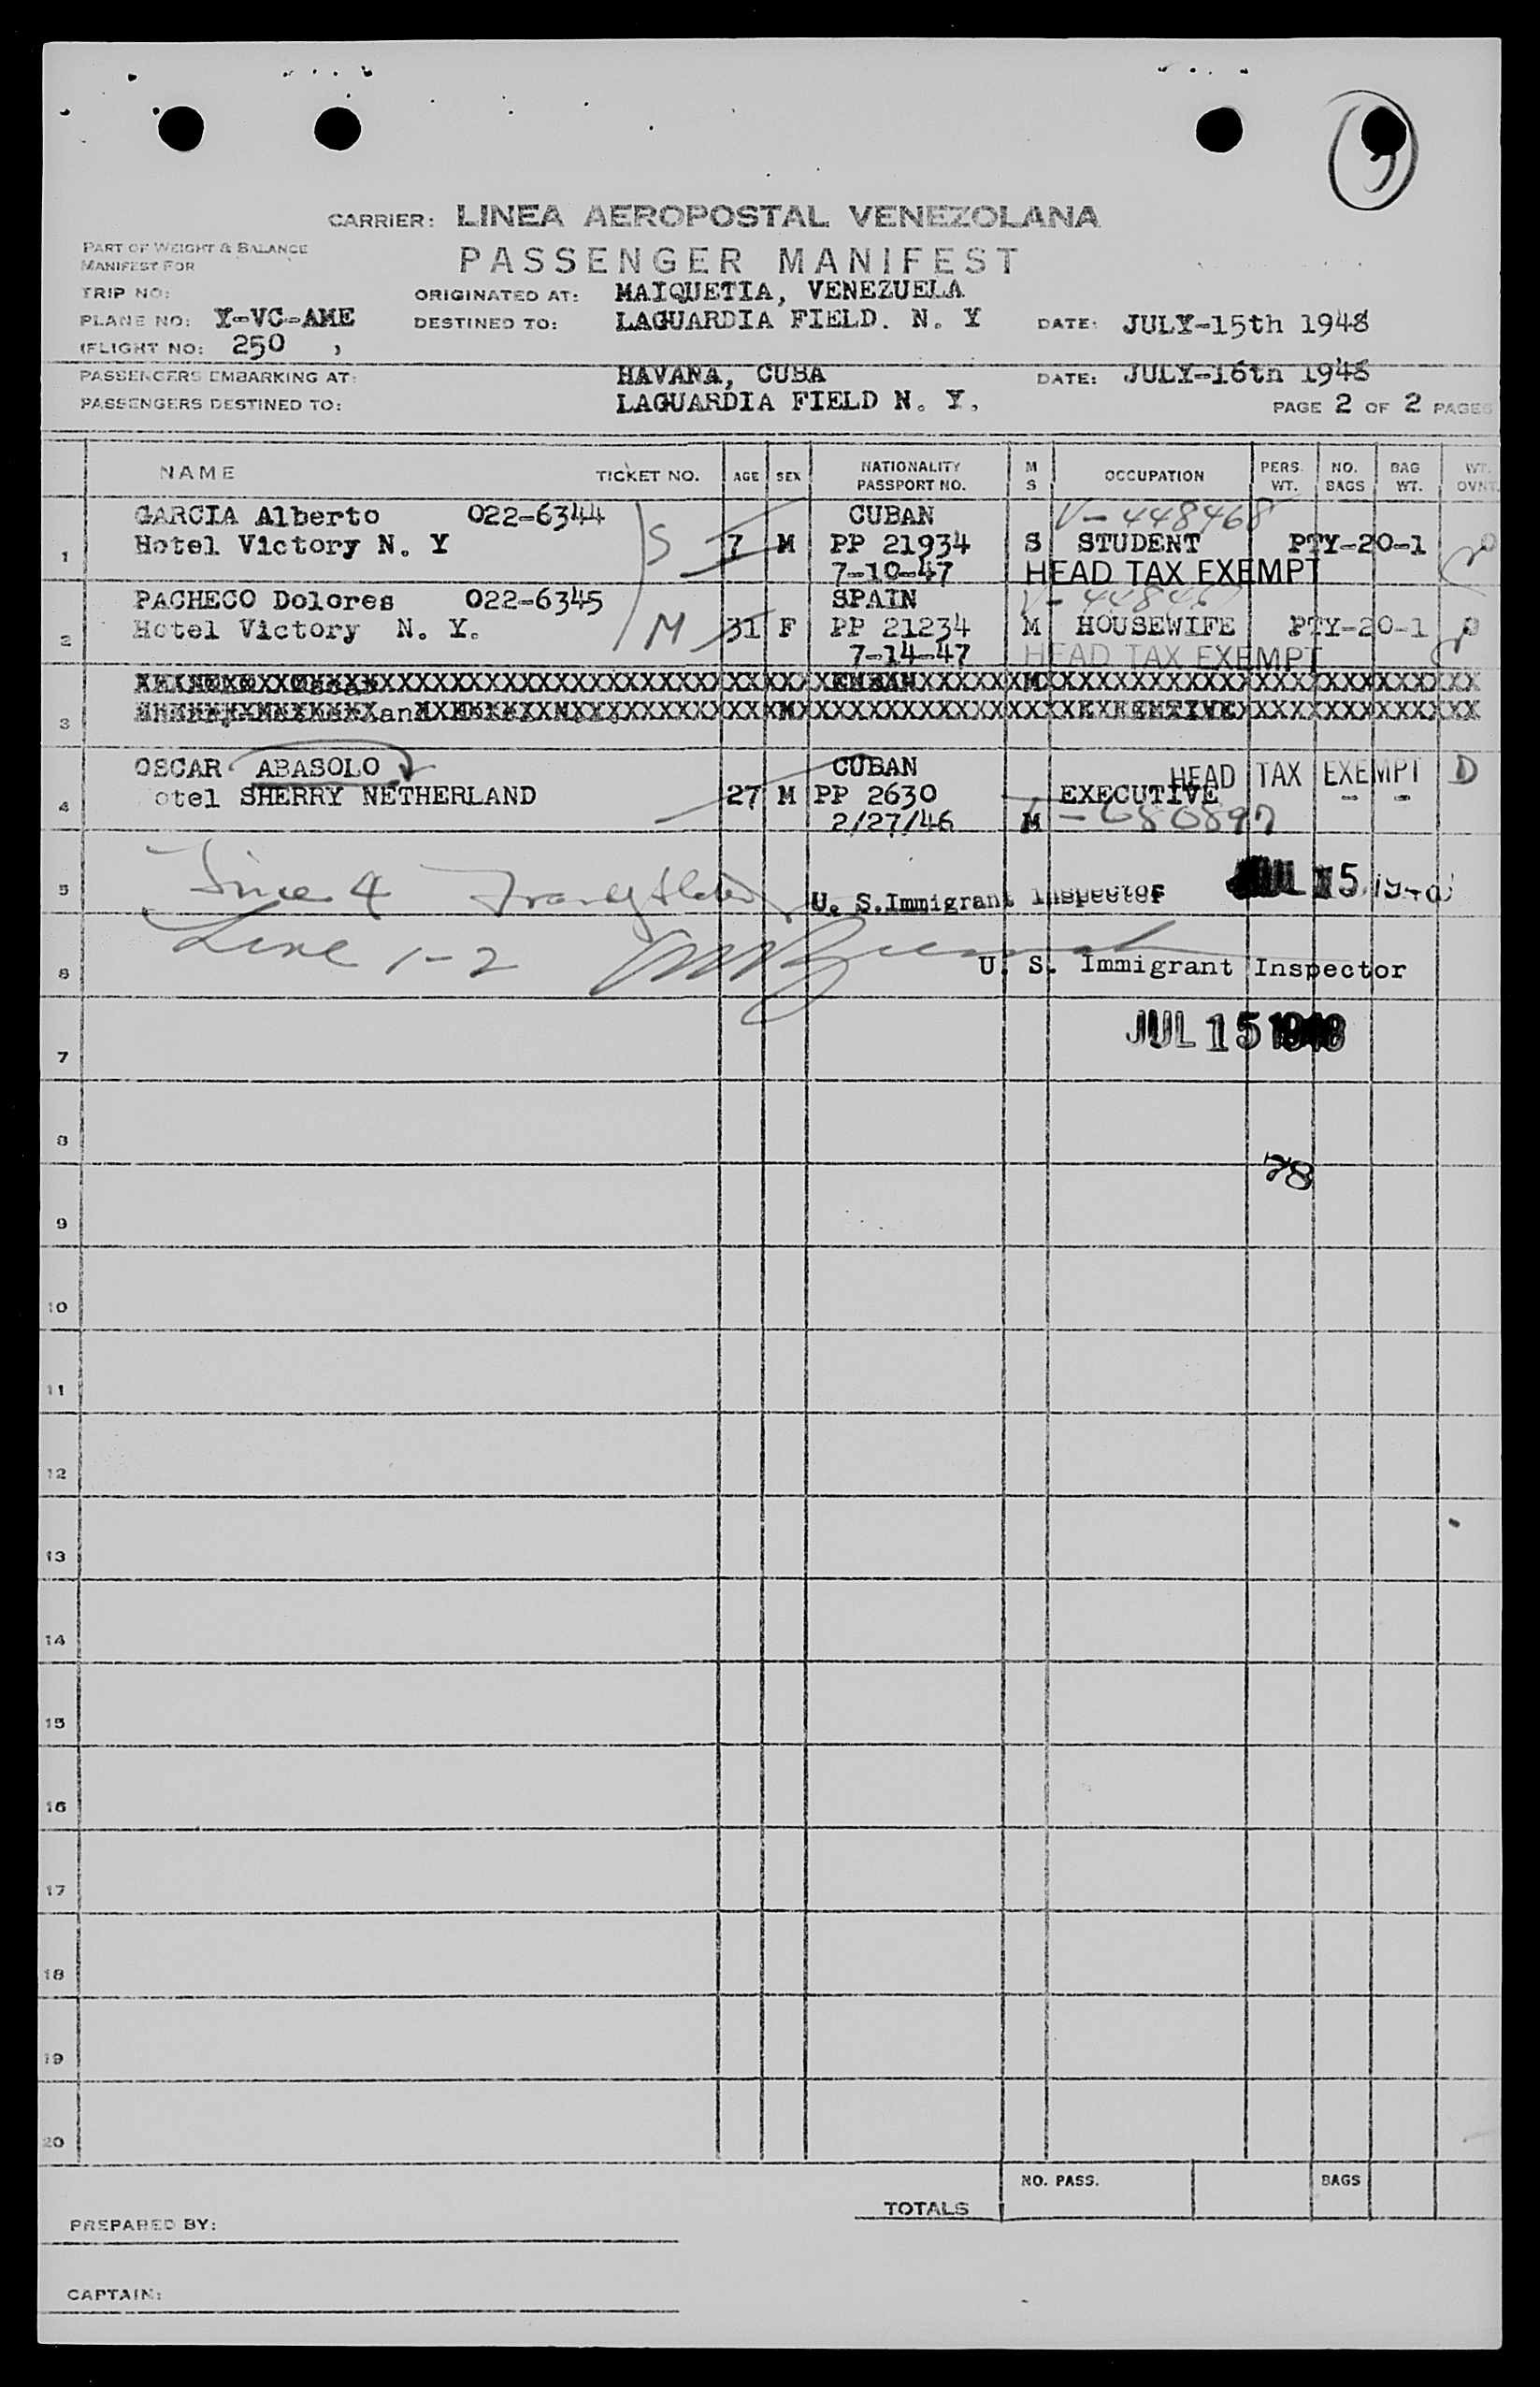 CARRIER: LINEA AEROPOSTAL VENEZOLANA
PART OF WEIGHT & BALANCE
MANIFEST FOR
PASSENGER MANIFEST
TRIP NO:
ORIGINATED AT: MAIQUETIA, VENEZUELA
PLANE NO: Y-VC-AME
DESTINED TO: LAGUARDIA FIELD. N. Y
DATE: JULY-15th 1948
(FLIGHT NO: 250 )
PASSENGERS EMBARKING AT: HAVANA, CUBA DATE: JULY-16th 1948
PASSENGERS DESTINED TO: LAGUARDIA FIELD N. Y.
PAGE 2 OF 2 PAGES
NAME TICKET NO. AGE SEX NATIONALITY PASSPORT NO. M S OCCUPATION PERS. WT. NO. BAGS BAG WT. WT. OVNT.
GARCIA Alberto 022-6344 CUBAN V-448468
1 Hotel Victory N. Y S 7 M PP 21934 S STUDENT PTY-20-1
7-10-47 HEAD TAX EXEMPT
PACHECO Dolores 022-6345 SPAIN
2 Hotel Victory N. Y. M 31 F PP 21234 M HOUSEWIFE PTY-20-1
7-14-47 HEAD TAX EXEMPT
3
OSCAR ABASOLO CUBAN HEAD TAX EXEMPT D
4 otel SHERRY NETHERLAND 27 M PP 2630 EXECUTIVE - -
2/27/46 M
5 4 U. S.Immigrant Inspector
Line 1-2
6 U. S. Immigrant Inspector
JUL 15 1948
7
8
28
9
10
11
12
13
14
15
16
17
18
19
20
NO. PASS. BAGS
TOTALS
PREPARED BY:
CAPTAIN: